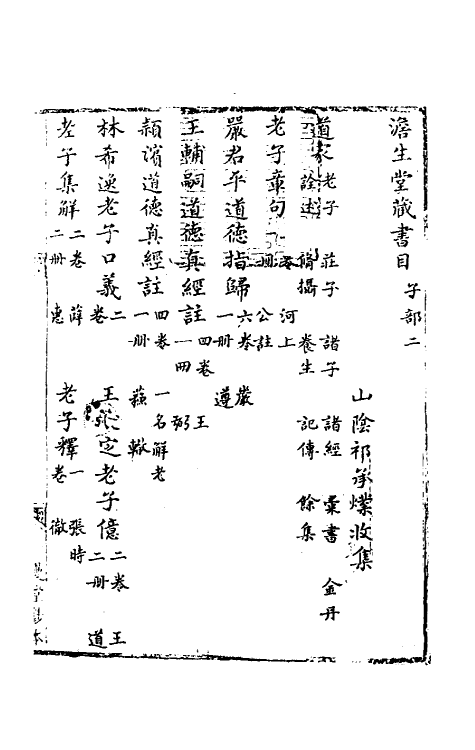 澹生堂藏書目 子部二
山陰祁承㸁收集
道家 老子 莊子 諸子 諸經 彙書 金丹
詮述 脩攝 養生 記傳 餘集
老子章句 二卷 二冊 河上公註
嚴君平道德指歸 六卷 一冊 嚴遵
王輔嗣道德真經註 四卷 一冊 王弼
頴濱道德真經註 四卷 一冊 一名解老 蘇轍
林希逸老子口義 二卷
王定老子億 二卷 二冊 王道
老子集解 二卷 二冊 薛惠
老子釋 一卷 張時徹